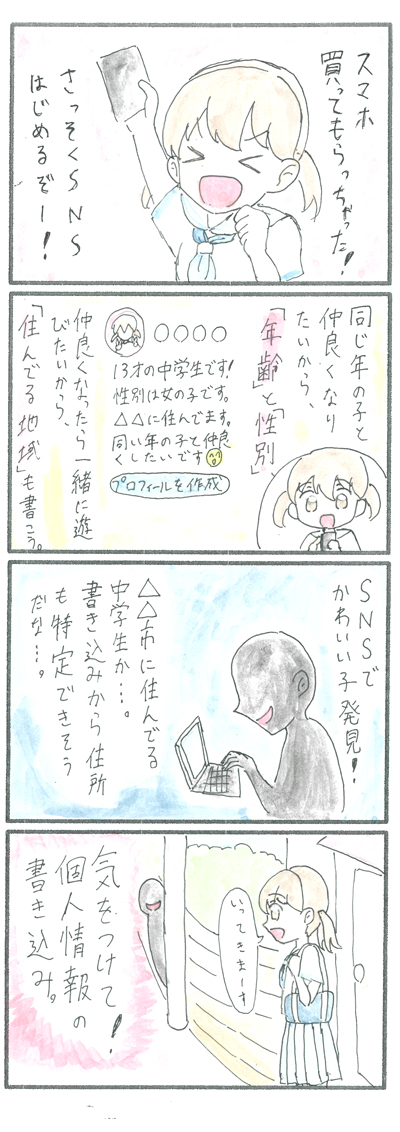 スマホ
買ってもらっちゃった!
さっそくSNS
はじめるぞー!
同じ年の子と
仲良くなり
たいから、
「年齢」と「性別」
○○○○
13才の中学生です!
性別は女の子です。
△△に住んでます。
同い年の子と仲良
くしたいです
プロフィールを作成
仲良くなったら一緒に遊
びたいから、
「住んでる地域」も書こう。
SNSで
かわいい子発見!
△△市に住んでる
中学生か…。
書き込みから住所
も特定できそう
だな…。
いってきまーす
気をつけて!
個人情報の
書き込み。